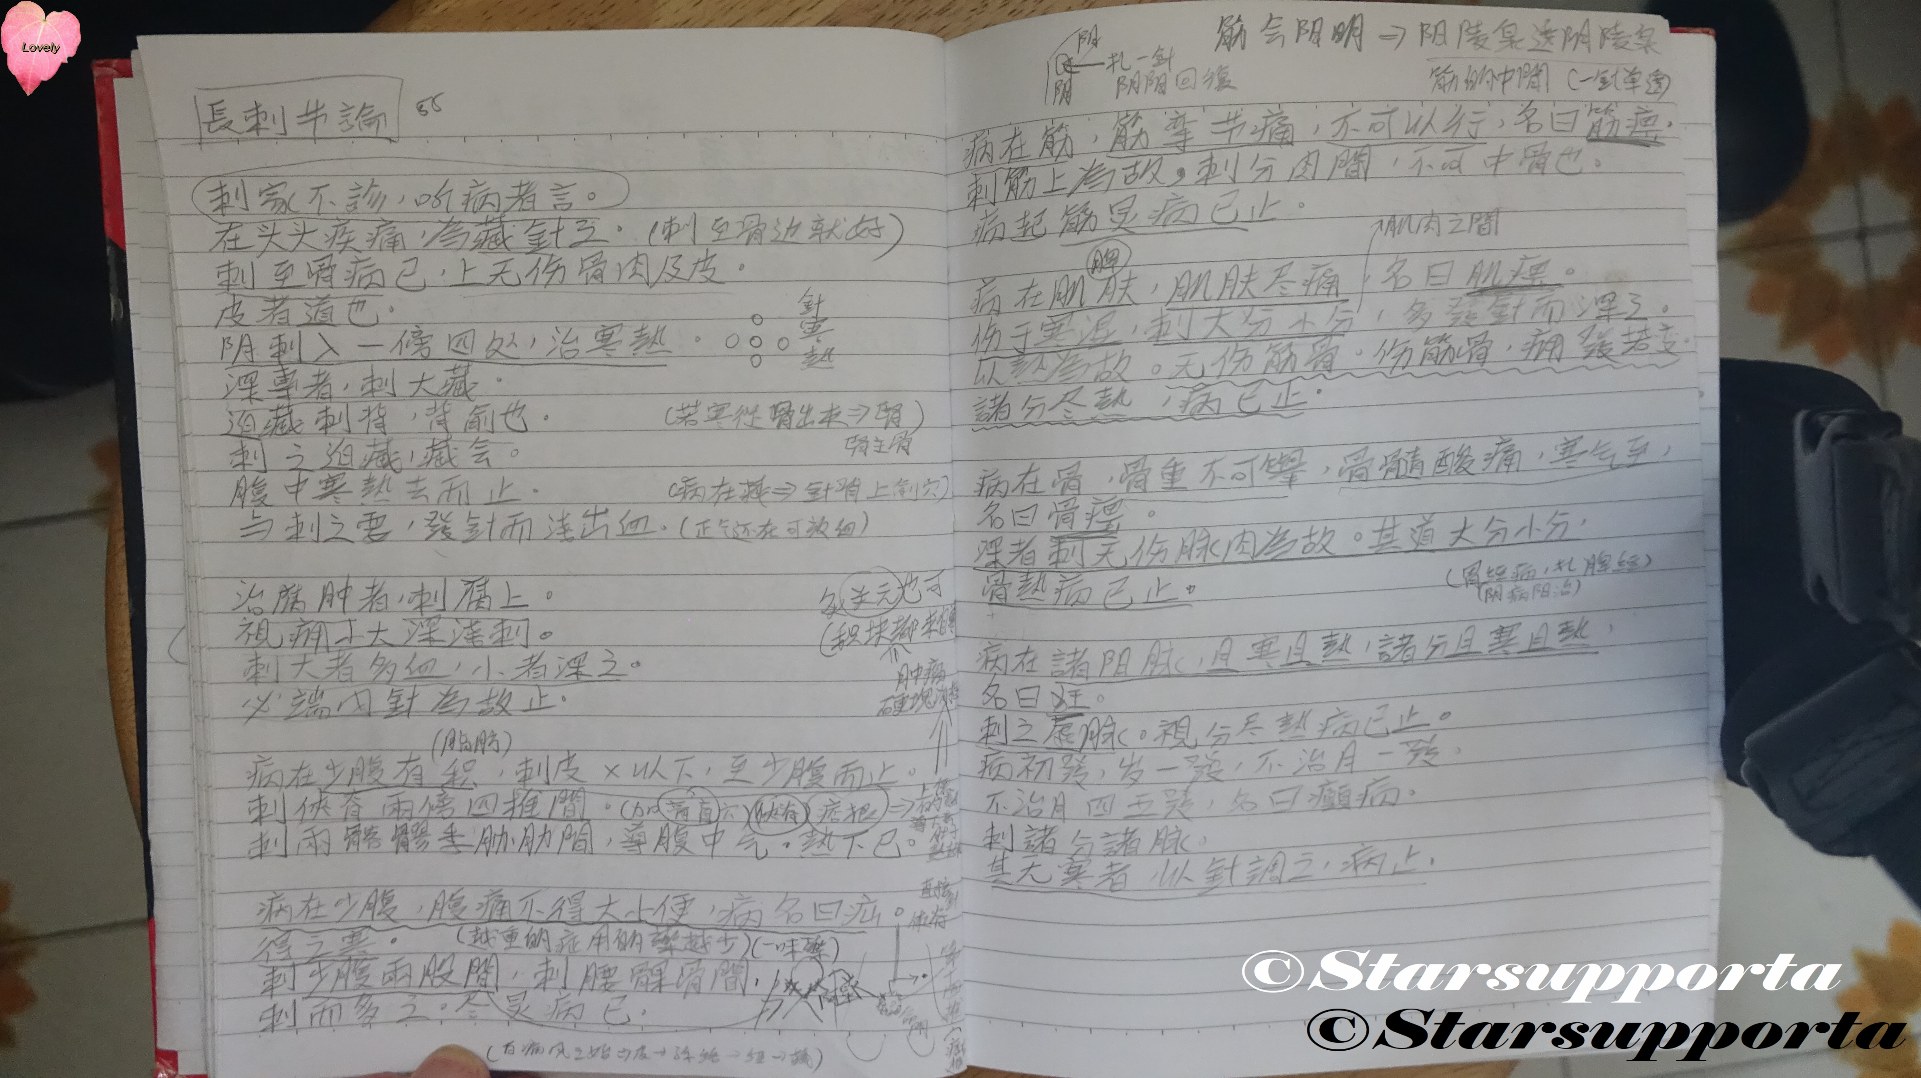 Lovely
長刺节論 55
刺家不診，听病者言。
在头头疾痛，為藏針之。(刺至骨边就好)
刺至骨病已，上无伤骨肉及皮。
皮者道也。
阴刺入一傍四处，治寒熱。
針
寒
熱
深專者，刺大藏。
迫藏刺背，背俞也。
(若寒從骨出来⇒腎)
腎主骨
刺之迫藏，藏会。
腹中寒熱去而止。
(病在藏⇒針背上俞穴)
与刺之要，發針而浅出血。(正气还在可放血)
治腐肿者，刺腐上。
視痈小大深浅刺。
刺大者多血，小者深之。
必端内針為故止。
(脂肪)
肿瘤
病在少腹有积，刺皮×以下，至少腹而止。
刺俠脊兩傍四椎間。
刺兩髂髎季肋肋間，導腹中气。熱下已。
病在少腹，腹痛不得大小便，病名曰疝。
得之寒。(越重的症用的藥越少)(一味藥)
刺少腹兩股間，刺腰髁骨間，
刺而多之。尽炅病已。
阳
阴
扎一針
阴阳回復
筋会阴明⇒阳陵泉透阴陵泉
筋的中間 (一針单透)
病在筋，筋攣节痛，不可以行，名曰筋痹。
刺筋上為故。刺分肉間，不可中骨也。
病起筋炅病已止。
肌肉之間
脾
病在肌肤，肌肤尽痛，名曰肌痹。
伤于寒湿，刺大分小分，多發針而深之。
以熱為故。无伤筋骨。伤筋骨，痈發若变。
諸分尽熱，病已止。
病在骨，骨重不可舉，骨髓酸痛，寒气至，
名曰骨痹。
深者刺无伤脉肉為故。其道大分小分，
骨熱病已止。
(阴病阳治)
病在諸阳脉，且寒且熱，諸分且寒且熱，
名曰狂。
刺之虚脉。視分尽熱病已止。
病初發，岁一發，不治月一發。
不治月四五發，名曰癲病。
刺諸分諸脉。
其无寒者，以針調之，病止。
©Starsupporta
©Starsupporta